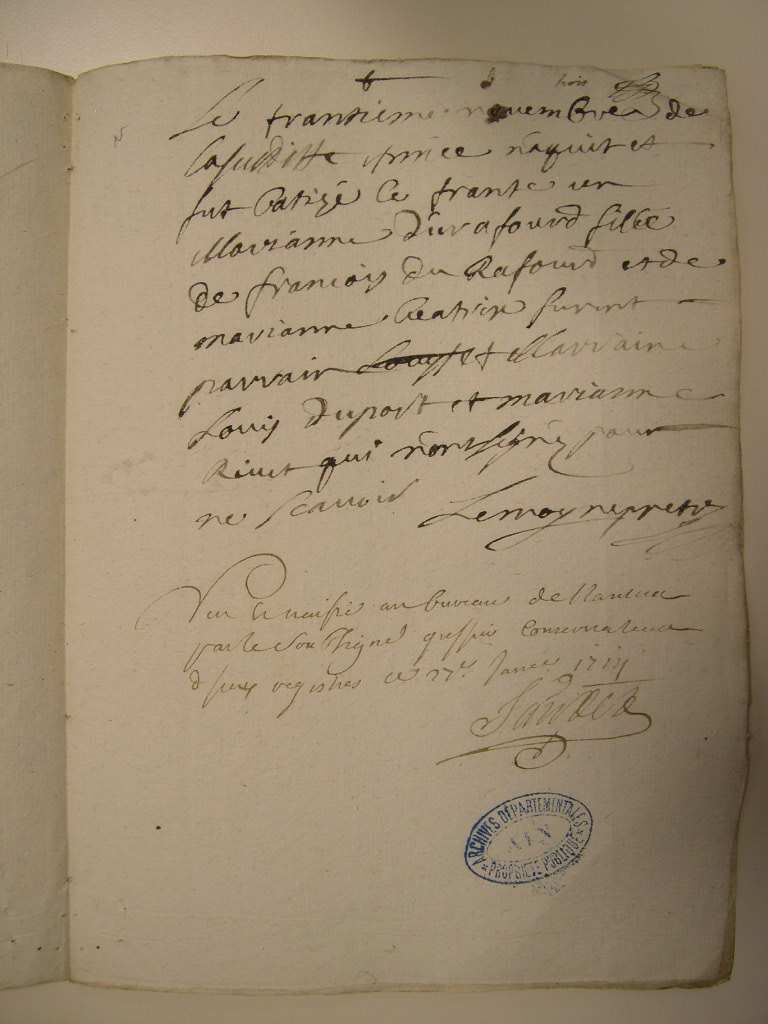 trois
Le trantieme novembre de
lasuditte année náquit et
fut batizé le trante un
Marianne durafourd fille
de francois du Rafourd et de
marianne beatrix furent
parrain et Marraine
Louis duport et marianne
Rivet qui nont signéz pour
ne scauoir Lemoyne pretre
Veu au bureau de Nantua
par le Soussigné greffier conservateur
registres ce 27e Janer
ARCHIVES DÉPARTEMENTALES
AIN
PROPRIÉTÉ PUBLIQUE